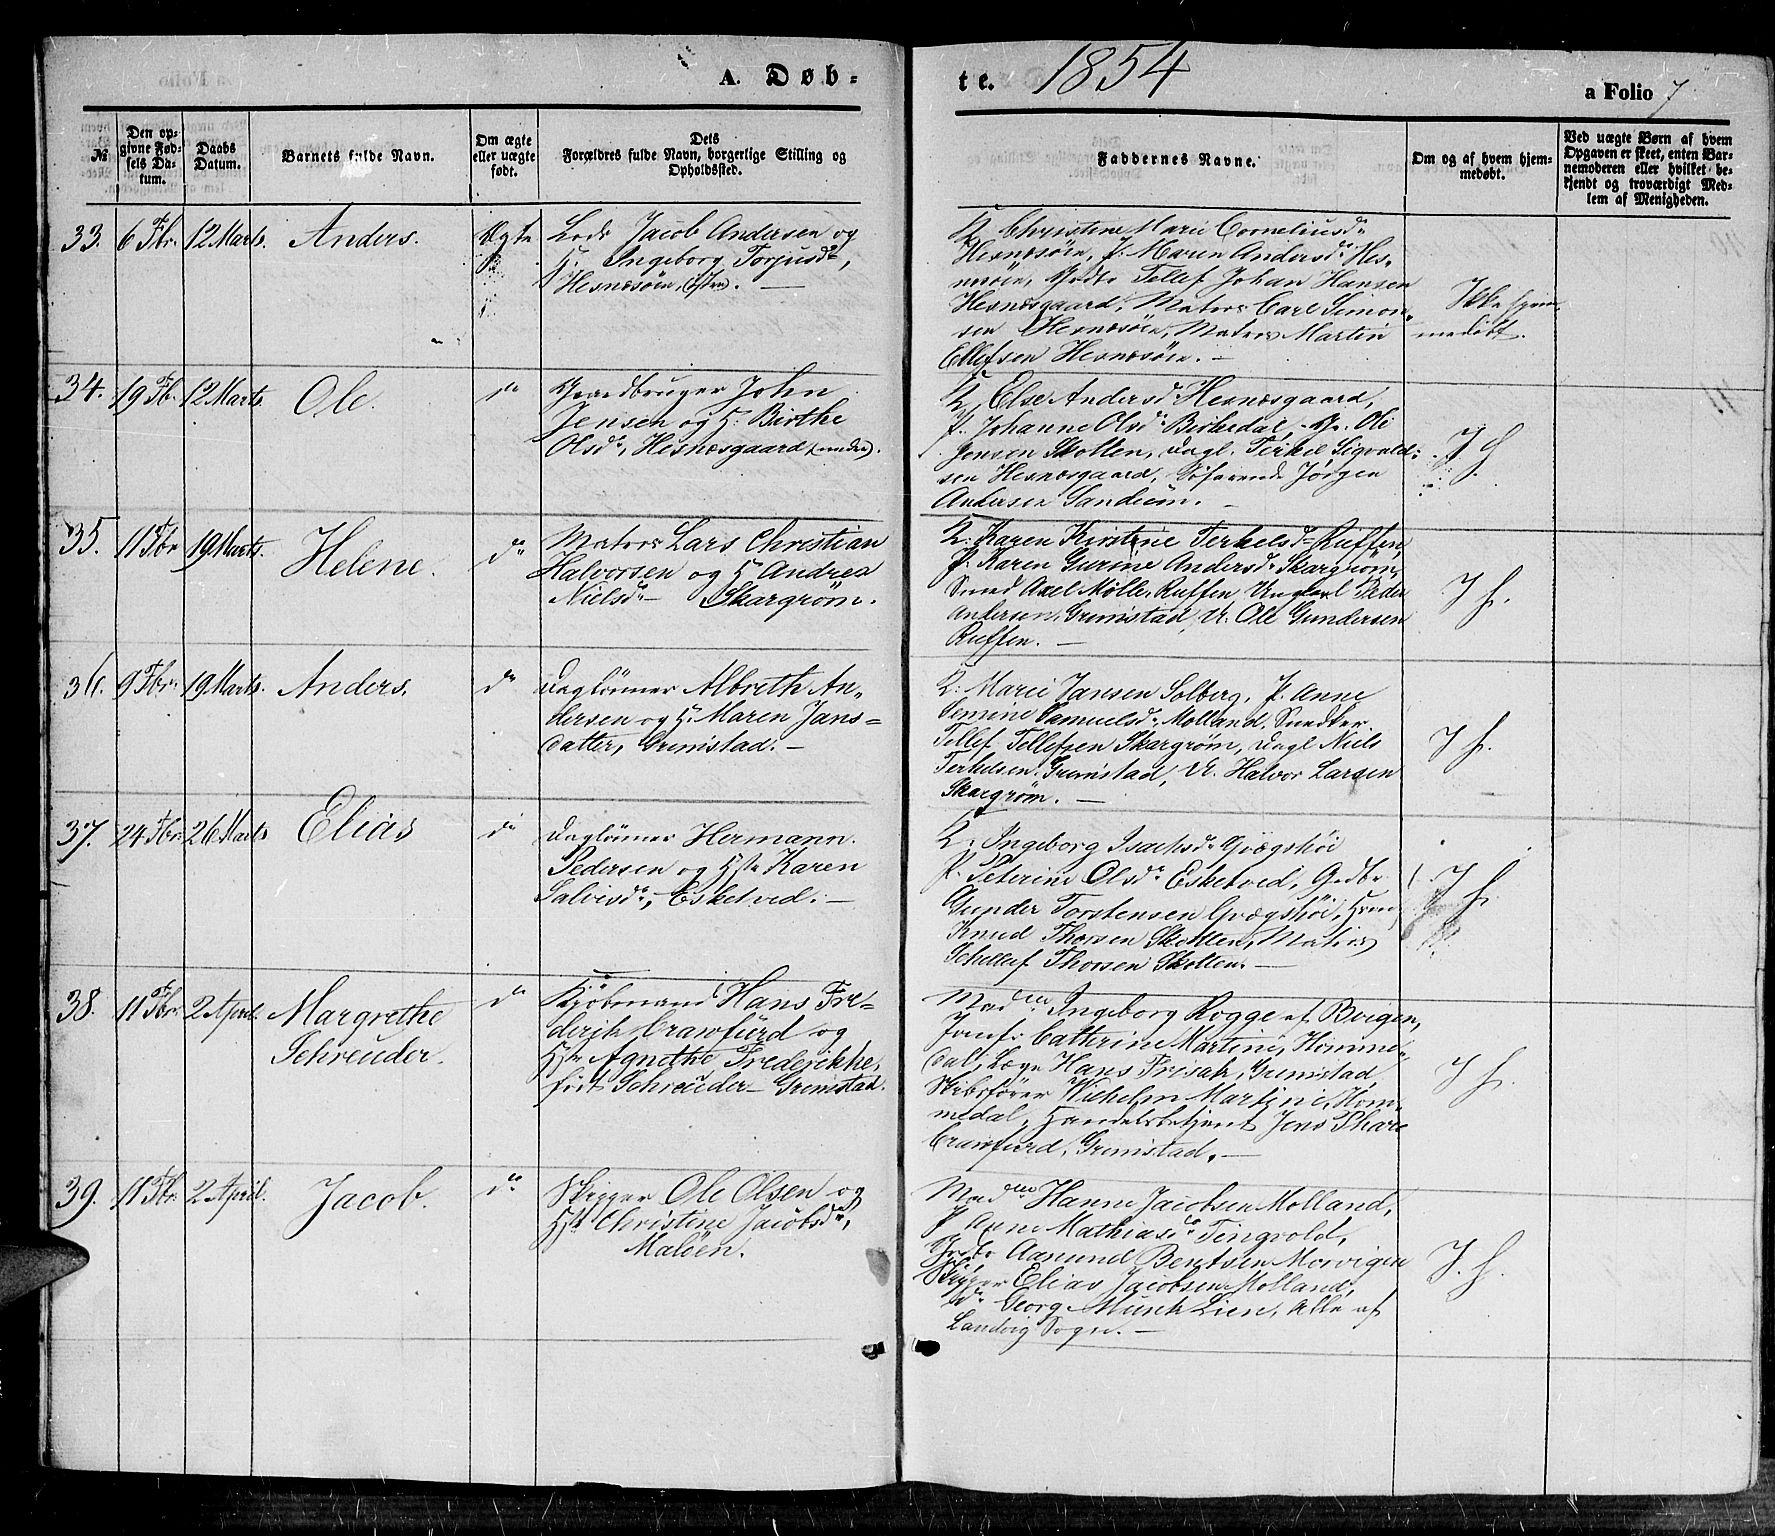 A. Døb=
te. 1854
a Folio 7
№
Den op-
givne Fød-
sels Da-
tum.
Daabs
Datum.
Barnets fulde Navn.
Om ægte
eller uægte
født.
Dets
Forældres fulde Navn, borgerlige Stilling og
Opholdssted.
Faddernes Navne.
Om og af hvem hjem-
medøbt.
Ved uægte Børn af hvem
Opgaven er skeet, enten Bar-
nemoderen eller hvilket be-
kjendt og troværdigt Med-
lem af Menigheden.
33. 6 Fbr. 12 Marts. Anders. Ægte
Lods Jacob Andersen og
H. Ingeborg Torjusd.,
Hesnæsøen,
K Christine Marie Corneliusd.
Hesnæsøen, P. Maren Andersd. Hes-
næsøen, Gbr. Tellef Johan Hansen
Hesnæsgaard, Matros Carl Simon-
sen Hesnæsøen, Matros Martin
Ellefsen Hesnæsøen.
Ikke hjem-
medøbt.
34. 19 Fb. 12 Marts. Ole. do
Gaardbruger John
Jensen og H. Birthe
Olsd., Hesnæsgaard
K. Else Andersd. Hesnæsgaard,
P. Johanne Olsd. Birkedal, Ole
Jensen Skolten, Dagl. Terkel Sigvald-
sen Hesnæsgaard, Søfarende Jørgen
Andersen Sandum.
I H
35. 11 Fbr 19 Marts. Helene. do
Matros Lars Christian
Halvorsen og H Andrea
Nielsd. Skargrøm.
K: Karen Kirstine Terkelsd. Ruffen,
P. Karen Gurine Andersd. Skargrøm,
Smed Axel Møller Ruffen, Ungkarl Peder
Andersen, Grimstad, U. Ole Gundersen
Ruffen.
I h.
36. 9 Fbr. 19 Marts. Anders. do
Daglønner Albreth An-
dersen og H. Maren Jans=
datter, Grimstad.
K: Marie Jansen Solberg, P. Anne
Semine Samuelsd. Molland, Snedker
Tellef Tellefsen Skargrøm, Dagl Niels
Terkelsen Grimstad, U. Halvor Larsen
Skargrøm.
I h.
37. 24 Fbr. 26 Marts Elias do
Daglønner Hermann
Pedersen og Hst. Karen
Salvisd., Esketved.
K: Ingeborg Isachsd.
P. Peterine Olsd. Esketved, Grdbr.
Gunder Torstensen
Knud Thorsen Skolten, Matros
Thorsen Skolten.
I h.
38. 11 Fbr. 2 April. Margrethe
Schreuder. do
Kjøbmand Hans Fre=
derik Crawfurd og
Hst. Agnethe Frederikke,
født Schreuder Grimstad.
Madm. Ingeborg Rogge af Bvigen,
Jomf. Cathrine Martini, Homme-
dal, Læge Hans Frisak, Grimstad,
Skibsfører Wilhelm Martini, Hom-
medal, Handelsbetjent Jens
Crawfurd, Grimstad.
I h.
39. 11 Fbr. 2 April. Jacob. do
Skipper Ole Olsen og
Hst. Christine Jacobsd.,
Maløen.
Madm. Hanne Jacobsen Molland,
P Anne Mathiasd. Tingvold,
Aamund Bentsen Morvigen
Skipper Elias Jacobsen Molland,
do Georg Munk Lien, Alle af
Landvig Sogn.
I. h.